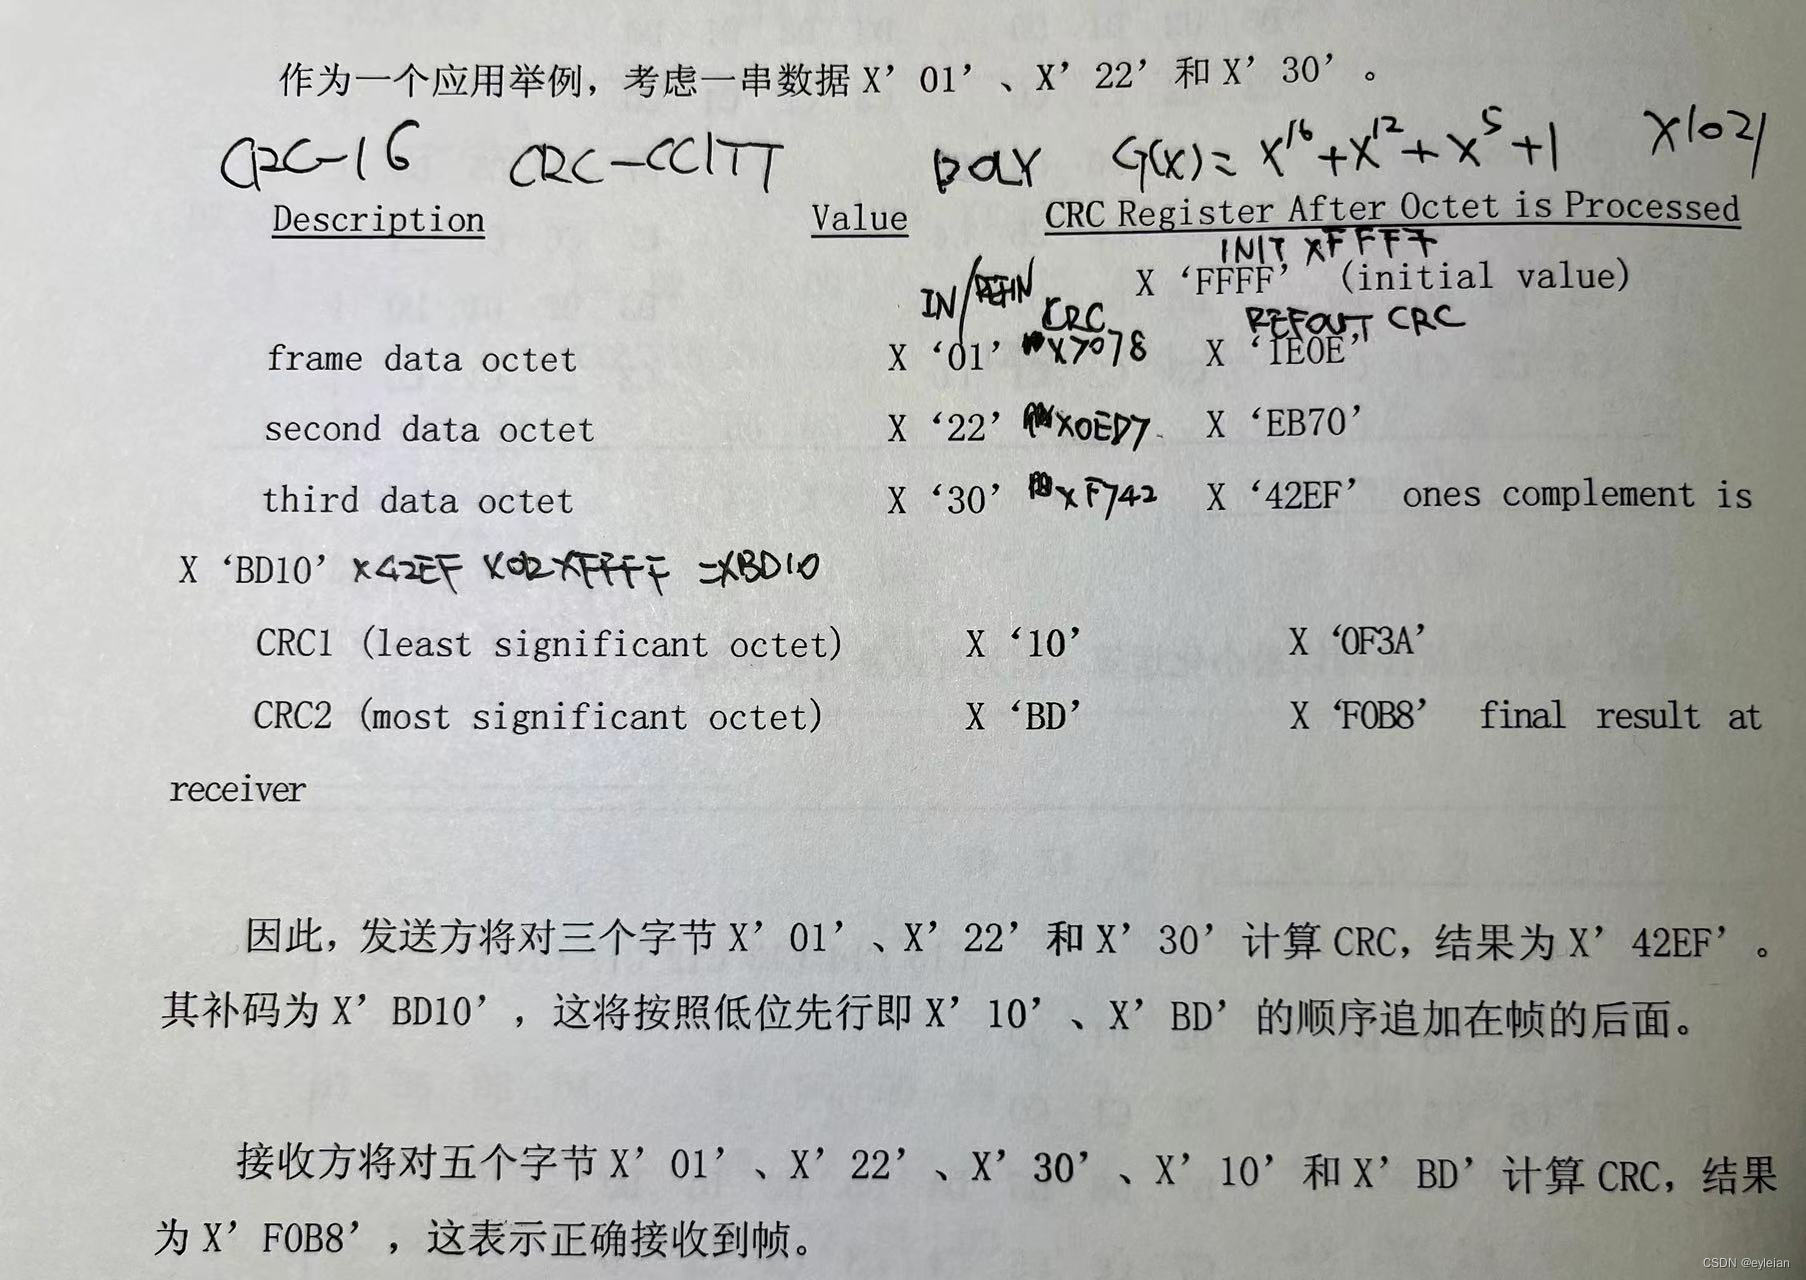 作为一个应用举例，考虑一串数据 X’ 01’ 、X’ 22’ 和 X’ 30’ 。
CRC-16 CRC-CCITT POLY G(X)= X¹⁶+X¹²+X⁵+1 X1021
Description Value CRC Register After Octet is Processed
INIT XFFFF
IN/REFIN X ‘FFFF’ (initial value)
CRC REFOUT CRC
frame data octet X ‘01’ X7078 X ‘1E0E’
second data octet X ‘22’ X0ED7 X ‘EB70’
third data octet X ‘30’ XF742 X ‘42EF’ ones complement is
X ‘BD10’ X42EF XOR XFFFF =XBD10
CRC1 (least significant octet) X ‘10’ X ‘0F3A’
CRC2 (most significant octet) X ‘BD’ X ‘F0B8’ final result at
receiver
因此，发送方将对三个字节 X’ 01’ 、X’ 22’ 和 X’ 30’ 计算 CRC，结果为 X’ 42EF’ 。
其补码为 X’ BD10’ ，这将按照低位先行即 X’ 10’ 、X’ BD’ 的顺序追加在帧的后面。
接收方将对五个字节 X’ 01’ 、X’ 22’ 、X’ 30’ 、X’ 10’ 和 X’ BD’ 计算 CRC，结果
为 X’ F0B8’ ，这表示正确接收到帧。
CSDN @eyleian